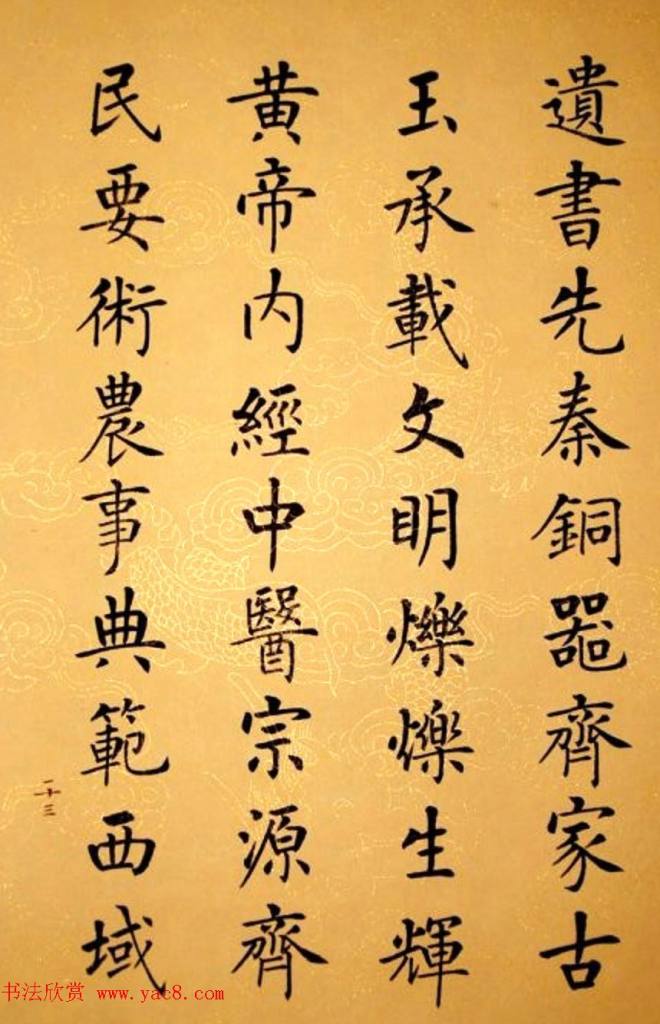 遺書先秦銅器齊家古
玉承載文明爍爍生輝
黄帝内經中醫宗源齊
民要術農事典範西域
二十三
书法欣赏 www.yac8.com